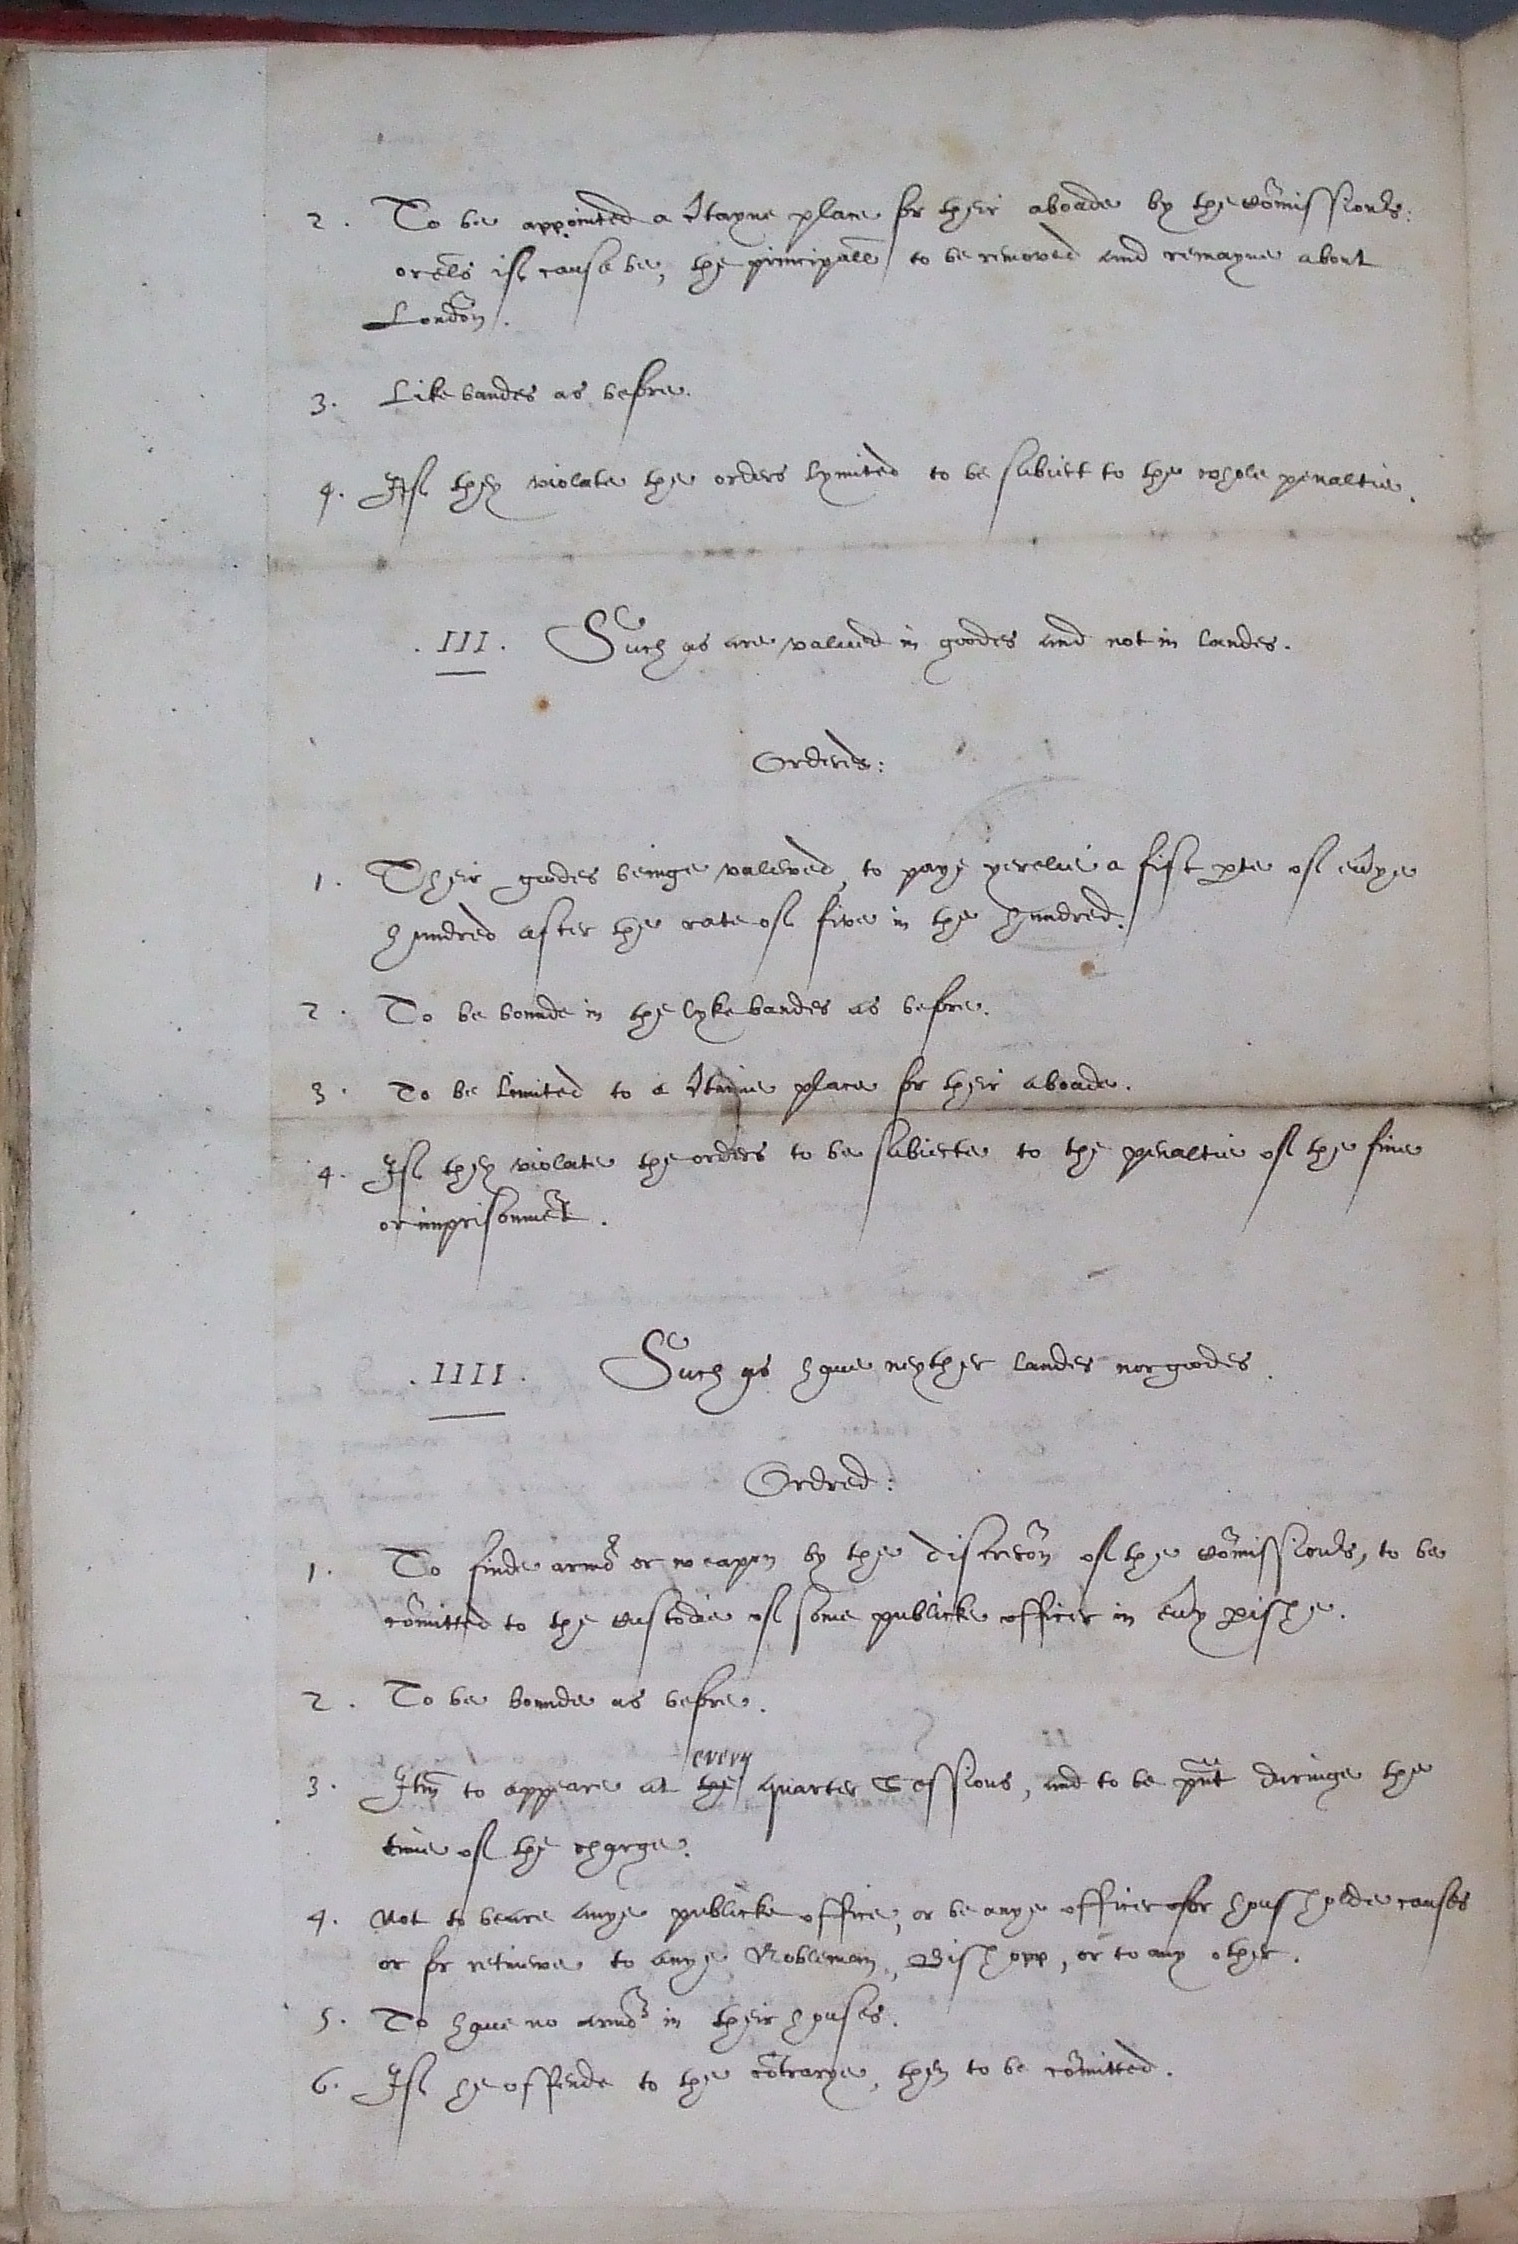 2. To be appointed a c͛tayne place for their aboade by the Com̃issionɇs:
orels if cause be, the principall to be removed and remayne about
London.
3. Like bandes as before.
4. If they violate the orders lymited to be subiect to the whole penaltie.
.III. Such as are valued in goodes and not in landes.
Ordered:
1. Their goodes beinge valewed, to paye yerelie a fift ꝑte of eu͛ye
hundred after the rate of five in the hundred.
2. To be bounde in the lyke bandes as before.
3. To be limited to a c͛taine place for their aboade.
4. If they violate the orders to be subiecte to the penaltie of the fine
or imprisonmẽt.
.IIII. Such as haue neyther landes nor goodes.
Ordred:
1. To finde armor or weapon by the discrec̃on of the Com̃issionɇs, to be
com̃itted to the Custodie of some publicke officer in eu͛y ꝑishe.
2. To be bounde as before.
every
3. Itm̃ to appeare at the quarter Sessions, and to be pñt duringe the
time of the charge.
4. Not to beare anye publicke office, or be anye officer for housholde causes
or for retinewe to anye Nobleman, Bishopp, or to any other.
5. To haue no armor in their houses.
6. If he offende to the cõtrarye, then to be com̃itted.